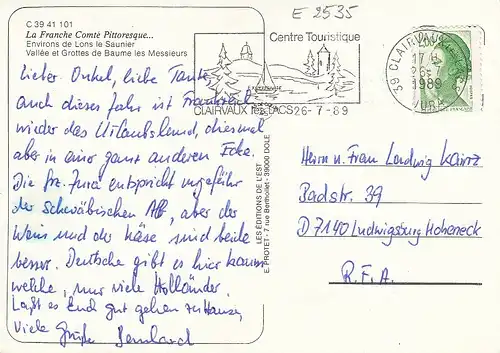 C 39 41 101
La Franche Comté Pittoresque...
Environs de Lons le Saunier
Vallée et Grottes de Baume les Messieurs
Lieber Onkel, liebe Tante,
auch dieses Jahr ist Frankreich
wieder das Urlaubsland, diesmal
aber in einer ganz anderen Ecke.
Die frz. Jura entspricht ungefähr
der schwäbischen Alb, aber der
Wein und der Käse sind beide
besser. Deutsche gibt es hier kaum
welche, nur viele Holländer
Laßt es Euch gut gehen zuhause,
Viele Grüße Bernhard
E 2535
Centre Touristique
CLAIRVAUX les LACS 26-7-89
39 CLAIRVAUX
1989
JURA
LES ÉDITIONS DE L'EST
E. PROTET - 7 rue Berthollet - 39000 DOLE
Herrn u. Frau Ludwig Kainz
Badstr. 39
D 7140 Ludwigsburg Hoheneck
R.F.A.